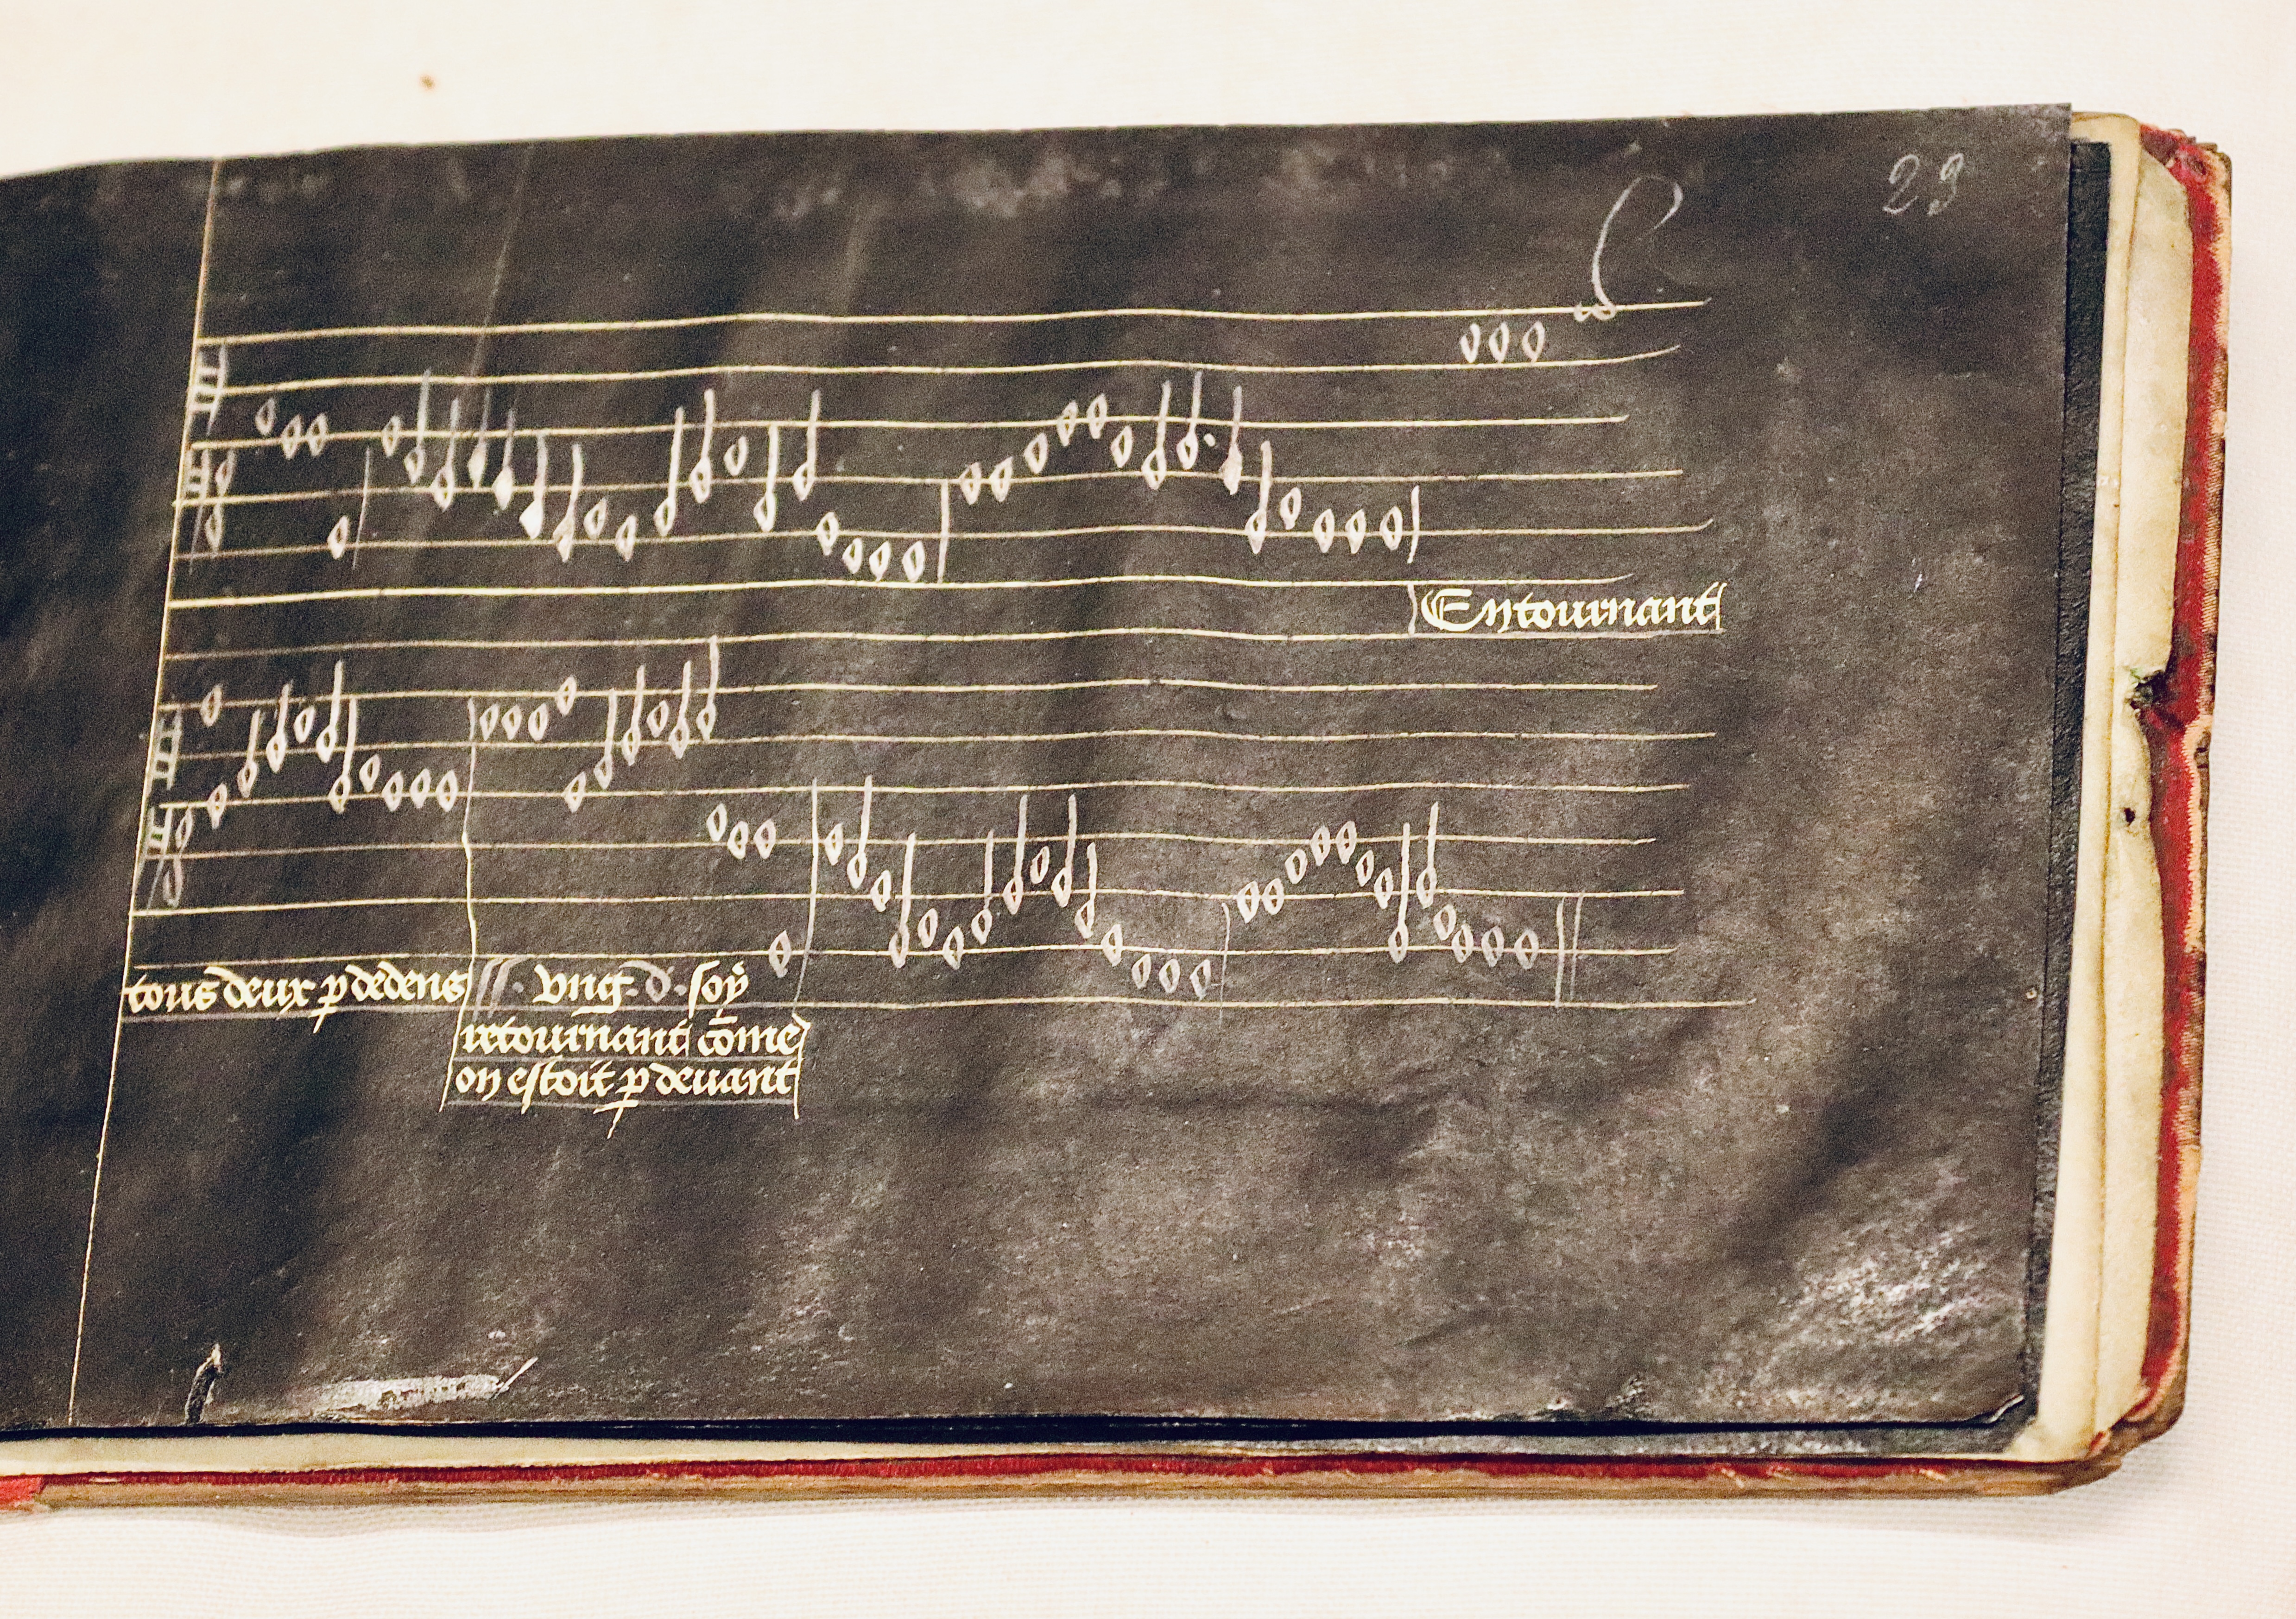 29
Entournant
tous deux p dedens
ss. vng. d. soy
retournant cōme
on estoit p deuant